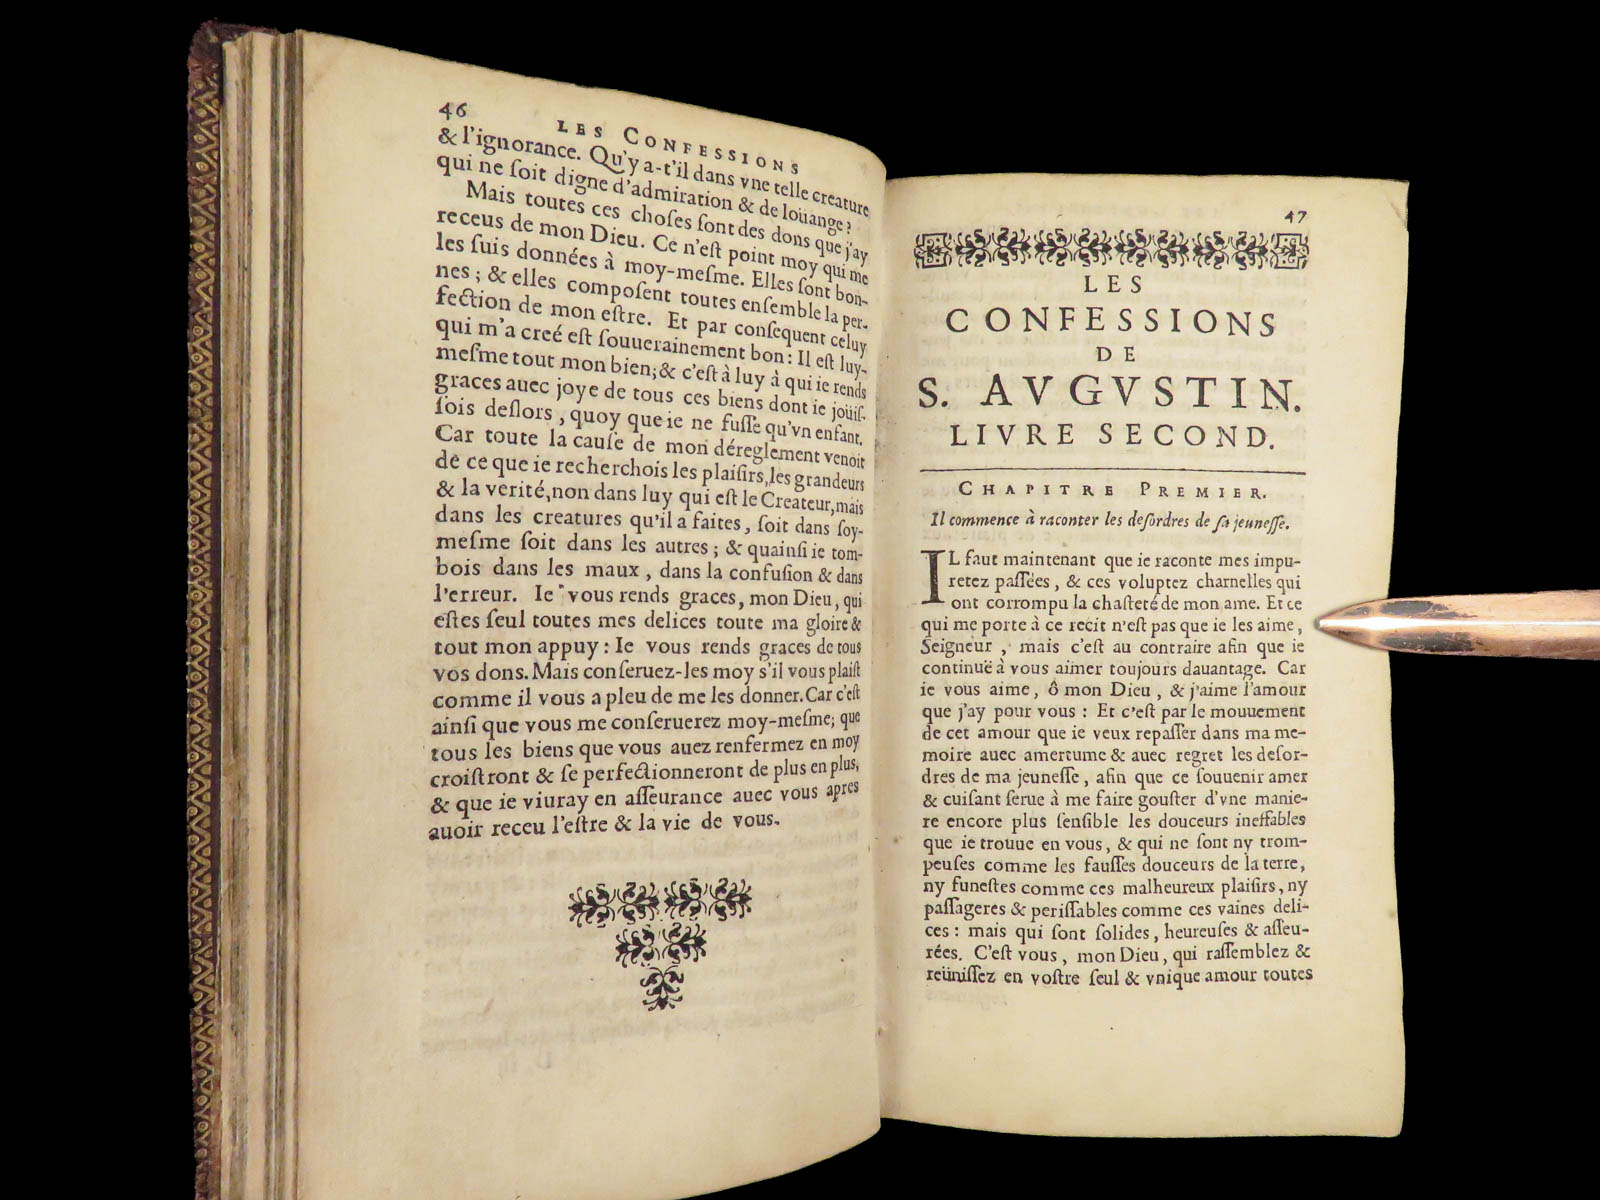 46
LES CONFESSIONS
& l'ignorance. Qu'y a-t'il dans vne telle creature
qui ne ſoit digne d'admiration & de loüange?
Mais toutes ces choſes ſont des dons que j'ay
receus de mon Dieu. Ce n'eſt point moy qui me
les ſuis données à moy-meſme. Elles ſont bon-
nes; & elles compoſent toutes enſemble la per-
fection de mon eſtre. Et par conſequent celuy
qui m'a creé eſt ſouuerainement bon: Il eſt luy-
meſme tout mon bien; & c'eſt à luy à qui ie rends
graces auec joye de tous ces biens dont ie joüiſ-
ſois deſlors, quoy que ie ne fuſſe qu'vn enfant.
Car toute la cauſe de mon déreglement venoit
de ce que ie recherchois les plaiſirs, les grandeurs
& la verité, non dans luy qui eſt le Createur, mais
dans les creatures qu'il a faites, ſoit dans ſoy-
meſme ſoit dans les autres; & qu'ainſi ie tom-
bois dans les maux, dans la confuſion & dans
l'erreur. Ie vous rends graces, mon Dieu, qui
eſtes ſeul toutes mes delices toute ma gloire &
tout mon appuy: Ie vous rends graces de tous
vos dons. Mais conſeruez-les moy s'il vous plaiſt
comme il vous a pleu de me les donner. Car c'eſt
ainſi que vous me conſeruerez moy-meſme; que
tous les biens que vous auez renfermez en moy
croiſtront & ſe perfectionneront de plus en plus,
& que ie viuray en aſſeurance auec vous apres
auoir receu l'eſtre & la vie de vous.
47
LES
CONFESSIONS
DE
S. AVGVSTIN.
LIVRE SECOND.
CHAPITRE PREMIER.
Il commence à raconter les deſordres de ſa jeuneſſe.
IL faut maintenant que ie raconte mes impu-
retez paſſées, & ces voluptez charnelles qui
ont corrompu la chaſteté de mon ame. Et ce
qui me porte à ce recit n'eſt pas que ie les aime,
Seigneur, mais c'eſt au contraire afin que ie
continuë à vous aimer toujours dauantage. Car
ie vous aime, ô mon Dieu, & j'aime l'amour
que j'ay pour vous: Et c'eſt par le mouuement
de cet amour que ie veux repaſſer dans ma me-
moire auec amertume & auec regret les deſor-
dres de ma jeuneſſe, afin que ce ſouuenir amer
& cuiſant ſerue à me faire gouſter d'vne manie-
re encore plus ſenſible les douceurs ineffables
que ie trouue en vous, & qui ne ſont ny trom-
peuſes comme les fauſſes douceurs de la terre,
ny funeſtes comme ces malheureux plaiſirs, ny
paſſageres & periſſables comme ces vaines deli-
ces: mais qui ſont ſolides, heureuſes & aſſeu-
rées. C'eſt vous, mon Dieu, qui raſſemblez &
reüniſſez en voſtre ſeul & vnique amour toutes